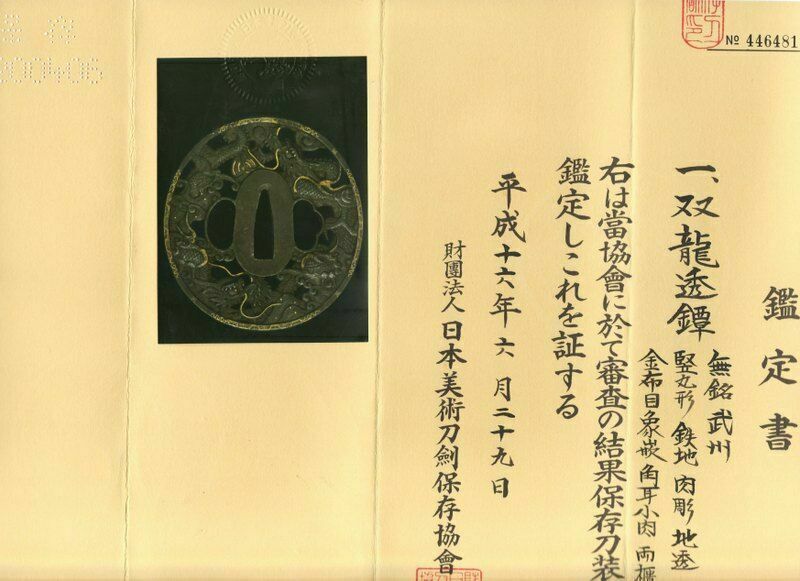 № 446481
鑑定書
一、双龍透鐔
無銘 武州
竪丸形 鉄地 肉彫 地透
金布目象嵌 角耳小肉 両櫃
右は當協會に於て審査の結果保存刀装
鑑定しこれを証する
平成十六年六月二十九日
財團法人 日本美術刀劍保存協會
200406